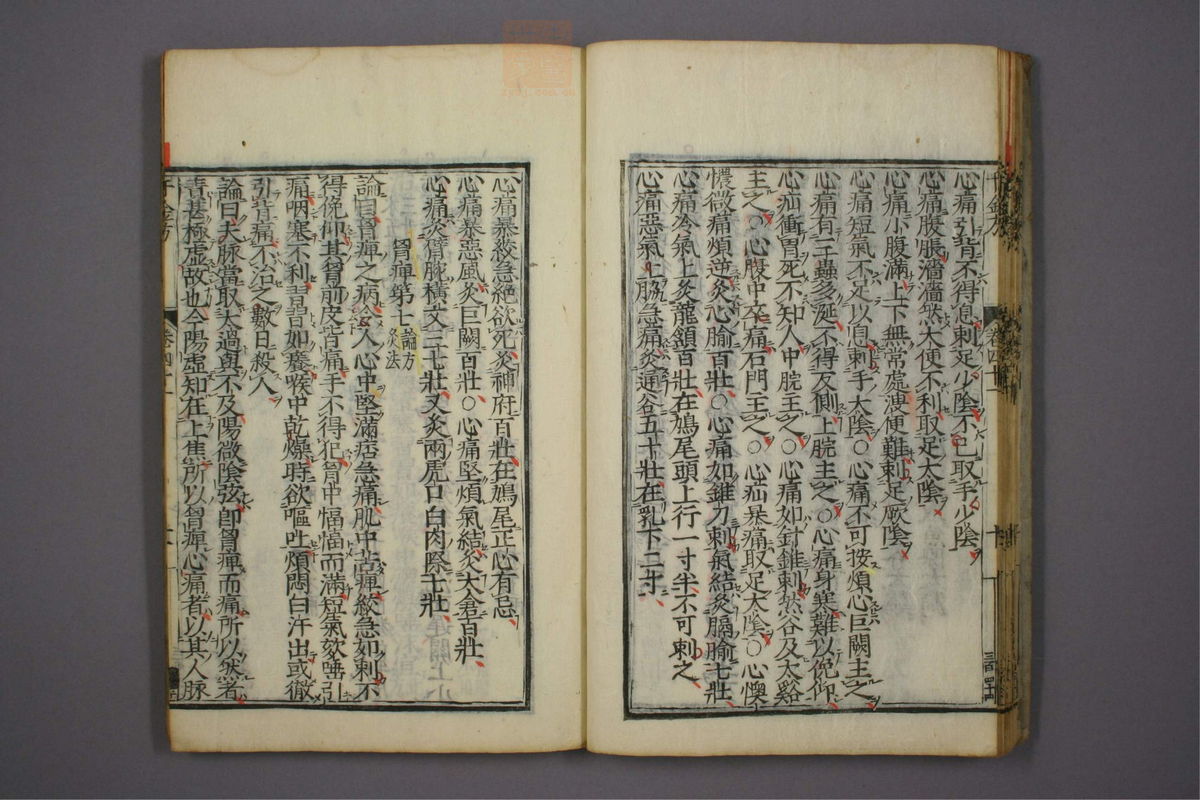 心痛引背不得息刺足少陰不已取手少陰
心痛腹脹濇濇然大便不利取足太陰
心痛小腹滿上下無常處溲便難刺足厥陰
心痛短氣不足以息刺手太陰○心痛不可按煩心巨闕主之
心痛有三蟲多涎不得反側上脘主之○心痛身寒難以俛仰
心疝衝冒死不知人中脘主之○心痛如針錐刺然谷及太谿
主之○心腹中卒痛石門主之○心疝暴痛取足太陰○心懊
憹微痛煩逆灸心腧百壯○心痛如錐刀刺氣結灸膈腧七壯
心痛冷氣上灸龍頷百壯在鳩尾頭上行一寸半不可刺之
心痛惡氣上脇急痛灸通谷五十壯在乳下二寸
心痛暴絞急絕欲死灸神府百壯在鳩尾正心有忌
心痛暴惡風灸巨闕百壯○心痛堅煩氣結灸太倉百壯
心痛灸臂腕橫文三七壯又灸兩虎口白肉際七壯
胷痺第七 論方 灸法
論曰胷痺之病令人心中堅滿痞急痛肌中苦痺絞急如刺不
得俛仰其胷前皮皆痛手不得犯胷中愊愊而滿短氣欬唾引
痛咽塞不利習習如癢喉中乾燥時欲嘔吐煩悶白汗出或徹
引背痛不治之數日殺人
論曰夫脉當取太過與不及陽微陰弦即胷痺而痛所以然者
責其極虛故也今陽虛知在上焦所以胷痺心痛者以其人脉
卷四十